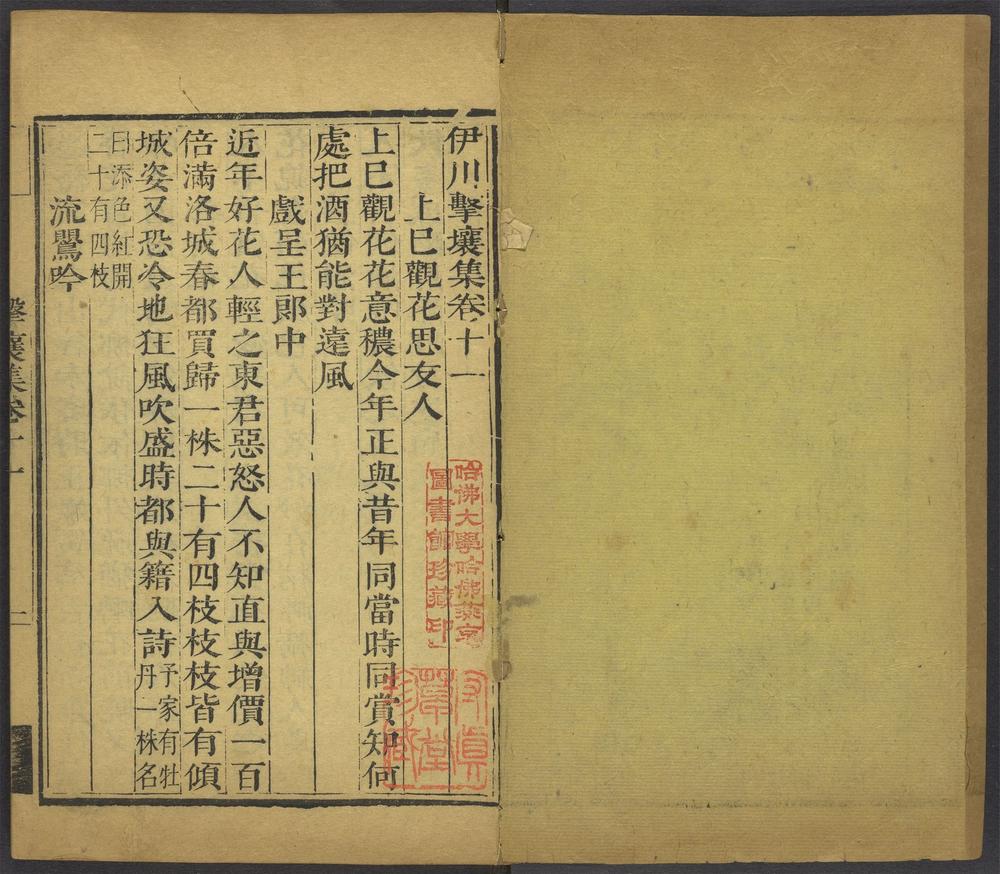 伊川擊壤集卷十一
上巳觀花思友人
上巳觀花花意穠今年正與昔年同當時同賞知何
處把酒猶能對遠風
戲呈王郎中
近年好花人輕之東君惡怒人不知直與增價一百
倍滿洛城春都買歸一株二十有四枝枝枝皆有傾
城姿又恐冷地狂風吹盛時都與籍入詩予家有牡
丹一株名
曰添色紅開
二十有四枝
流鶯吟
擊壤集卷十一
哈佛大學哈佛燕京
圖書館珍藏印